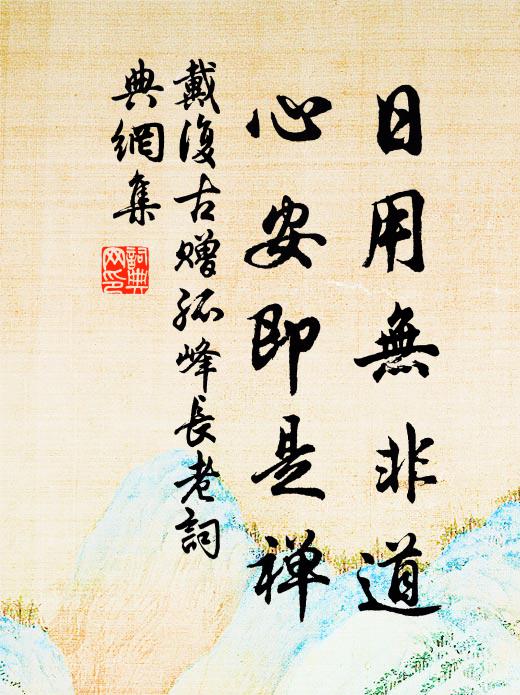 日用無非道
心安即是禅
戴復古赠孤峰長老詞
典網集
詞典
网印